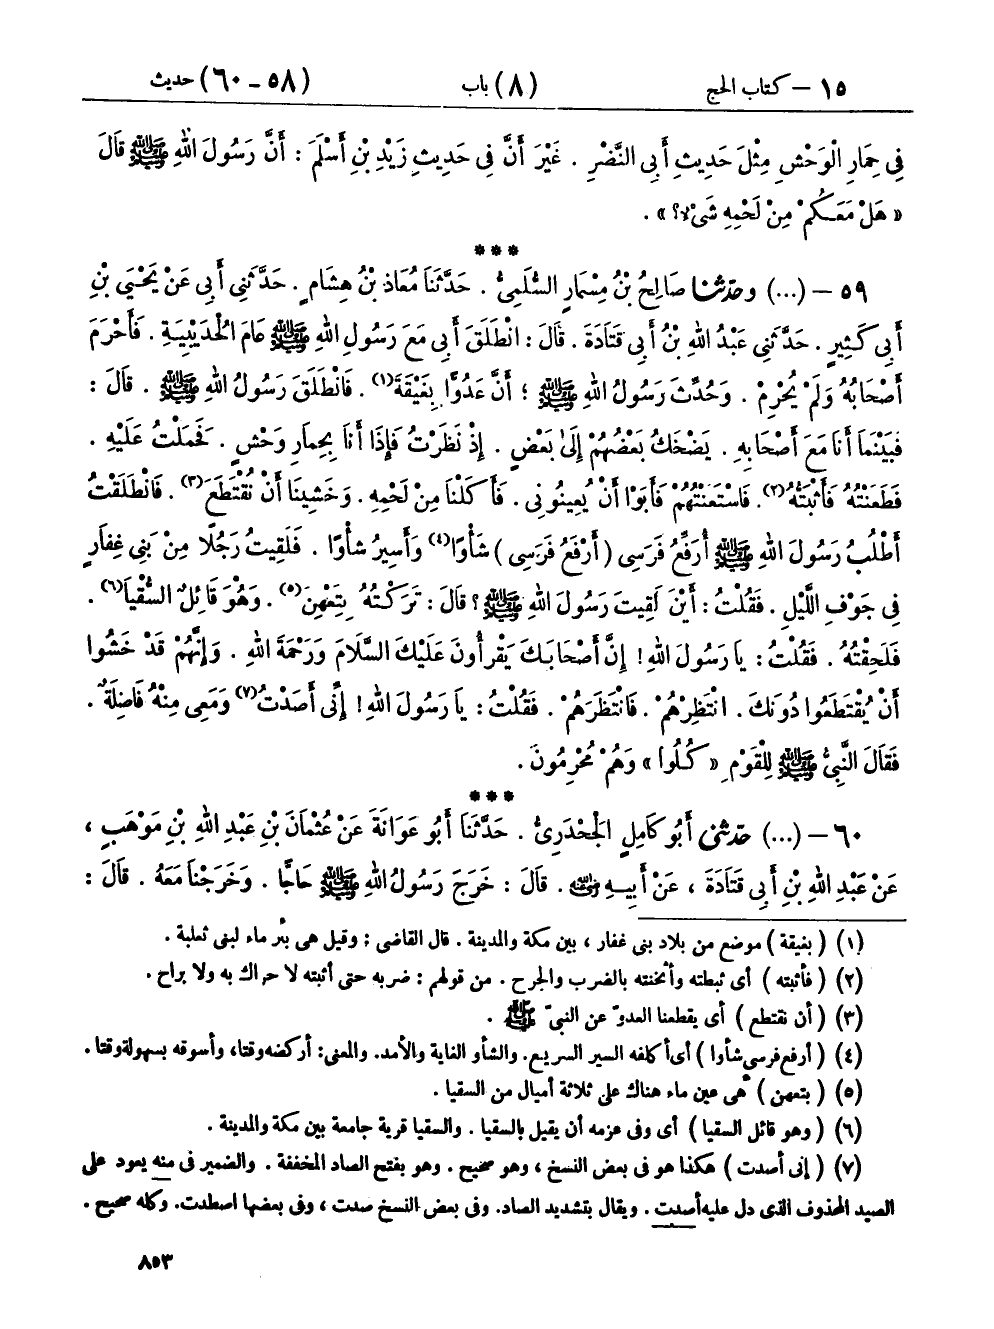 ١٥ – كتاب الحج (٨) باب (٥٨ – ٦٠) حديث
فِي حِمَارِ الْوَحْشِ مِثْلَ حَدِيثِ أَبِي النَّضْرِ . غَيْرَ أَنَّ فِي حَدِيثِ زَيْدِ بْنِ أَسْلَمَ : أَنَّ رَسُولَ اللهِ ﷺ قَالَ
« هَلْ مَعَكُمْ مِنْ لَحْمِهِ شَيْءٌ؟ » .
***
٥٩ – (...) وحَدَّثَنَا صَالِحُ بْنُ مِسْمَارٍ السُّلَمِيُّ . حَدَّثَنَا مُعَاذُ بْنُ هِشَامٍ . حَدَّثَنِي أَبِي عَنْ يَحْيَي بْنِ
أَبِي كَثِيرٍ . حَدَّثَنِي عَبْدُ اللهِ بْنُ أَبِي قَتَادَةَ . قَالَ : انْطَلَقَ أَبِي مَعَ رَسُولِ اللهِ ﷺ عَامَ الْحُدَيْبِيَةِ . فَأَحْرَمَ
أَصْحَابُهُ وَلَمْ يُحْرِمْ . وَحُدِّثَ رَسُولُ اللهِ ﷺ ؛ أَنَّ عَدُوًّا بِغَيْقَةَ(١) . فَانْطَلَقَ رَسُولُ اللهِ ﷺ . قَالَ :
فَبَيْنَمَا أَنَا مَعَ أَصْحَابِهِ . يَضْحَكُ بَعْضُهُمْ إِلَىٰ بَعْضٍ . إِذْ نَظَرْتُ فَإِذَا أَنَا بِحِمَارِ وَحْشٍ . فَحَمَلْتُ عَلَيْهِ .
فَطَعَنْتُهُ فَأَثْبَتُّهُ(٢) . فَاسْتَعَنْتُهُمْ فَأَبَوْا أَنْ يُعِينُونِي . فَأَكَلْنَا مِنْ لَحْمِهِ . وَخَشِينَا أَنْ نُقْتَطَعَ(٣) . فَانْطَلَقْتُ
أَطْلُبُ رَسُولَ اللهِ ﷺ أُرَفِّعُ فَرَسِي ( أَرْفَعُ فَرَسِي ) شَأْوًا(٤) وَأَسِيرُ شَأْوًا . فَلَقِيتُ رَجُلًا مِنْ بَنِي غِفَارٍ
فِي جَوْفِ اللَّيْلِ . فَقُلْتُ : أَيْنَ لَقِيتَ رَسُولَ اللهِ ﷺ ؟ قَالَ : تَرَكْتُهُ بِتَعْهِنَ(٥) . وَهُوَ قَائِلٌ السُّقْيَا(٦) .
فَلَحِقْتُهُ . فَقُلْتُ : يَا رَسُولَ اللهِ ! إِنَّ أَصْحَابَكَ يَقْرَأُونَ عَلَيْكَ السَّلَامَ وَرَحْمَةَ اللهِ . وَإِنَّهُمْ قَدْ خَشُوا
أَنْ يُقْتَطَعُوا دُونَكَ . انْتَظِرْهُمْ . فَانْتَظَرَهُمْ . فَقُلْتُ : يَا رَسُولَ اللهِ ! إِنِّي أَصَدْتُ(٧) وَمَعِي مِنْهُ فَاضِلَةٌ .
فَقَالَ النَّبِيُّ ﷺ لِلْقَوْمِ « كُلُوا » وَهُمْ مُحْرِمُونَ .
***
٦٠ – (...) حَدَّثَنِي أَبُو كَامِلٍ الْجَحْدَرِيُّ . حَدَّثَنَا أَبُو عَوَانَةَ عَنْ عُثْمَانَ بْنِ عَبْدِ اللهِ بْنِ مَوْهَبٍ ،
عَنْ عَبْدِ اللهِ بْنِ أَبِي قَتَادَةَ ، عَنْ أَبِيهِ رضي الله عنه . قَالَ : خَرَجَ رَسُولُ اللهِ ﷺ حَاجًّا . وَخَرَجْنَا مَعَهُ . قَالَ :
(١) ( بغيقة ) موضع من بلاد بني غفار ، بين مكة والمدينة . قال القاضي : وقيل هي بئر ماء لبني ثعلبة .
(٢) ( فأثبته ) أي ثبطته وأثخنته بالضرب والجرح . من قولهم : ضربه حتى أثبته لا حراك به ولا براح .
(٣) ( أن نقتطع ) أي يقطعنا العدوّ عن النبيّ ﷺ .
(٤) ( أرفع فرسي شأوا ) أي أكلفه السير السريع. والشأو الغاية والأمد. والمعنى: أركضه وقتا، وأسوقه بسهولة وقتا .
(٥) ( بتعهن ) هي عين ماء هناك على ثلاثة أميال من السقيا .
(٦) ( وهو قائل السقيا ) أي وفي عزمه أن يقيل بالسقيا . والسقيا قرية جامعة بين مكة والمدينة .
(٧) ( إني أصدت ) هكذا هو في بعض النسخ ، وهو صحيح . وهو بفتح الصاد المخففة . والضمير في منه يعود على
الصيد المحذوف الذي دل عليه أصدت . ويقال بتشديد الصاد. وفي بعض النسخ صدت ، وفي بعضها اصطدت. وكله صحيح .
٨٥٣